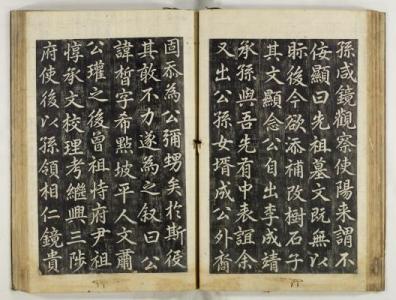 孫咸鏡觀察使陽来謂不
侫顯曰先祖墓文既無以
眎後今欲添補改樹石子
其文顯念公自出李成靖
承孫與吾先有中表誼余
又出公孫女壻成公外裔
固忝為公彌甥矣於斯役
其敢不力遂為之叙曰公
諱晳字希點坡平人文肅
公瓘之後曾祖恃府尹祖
惇承文校理考繼興三陟
府使後以孫領相仁鏡貴